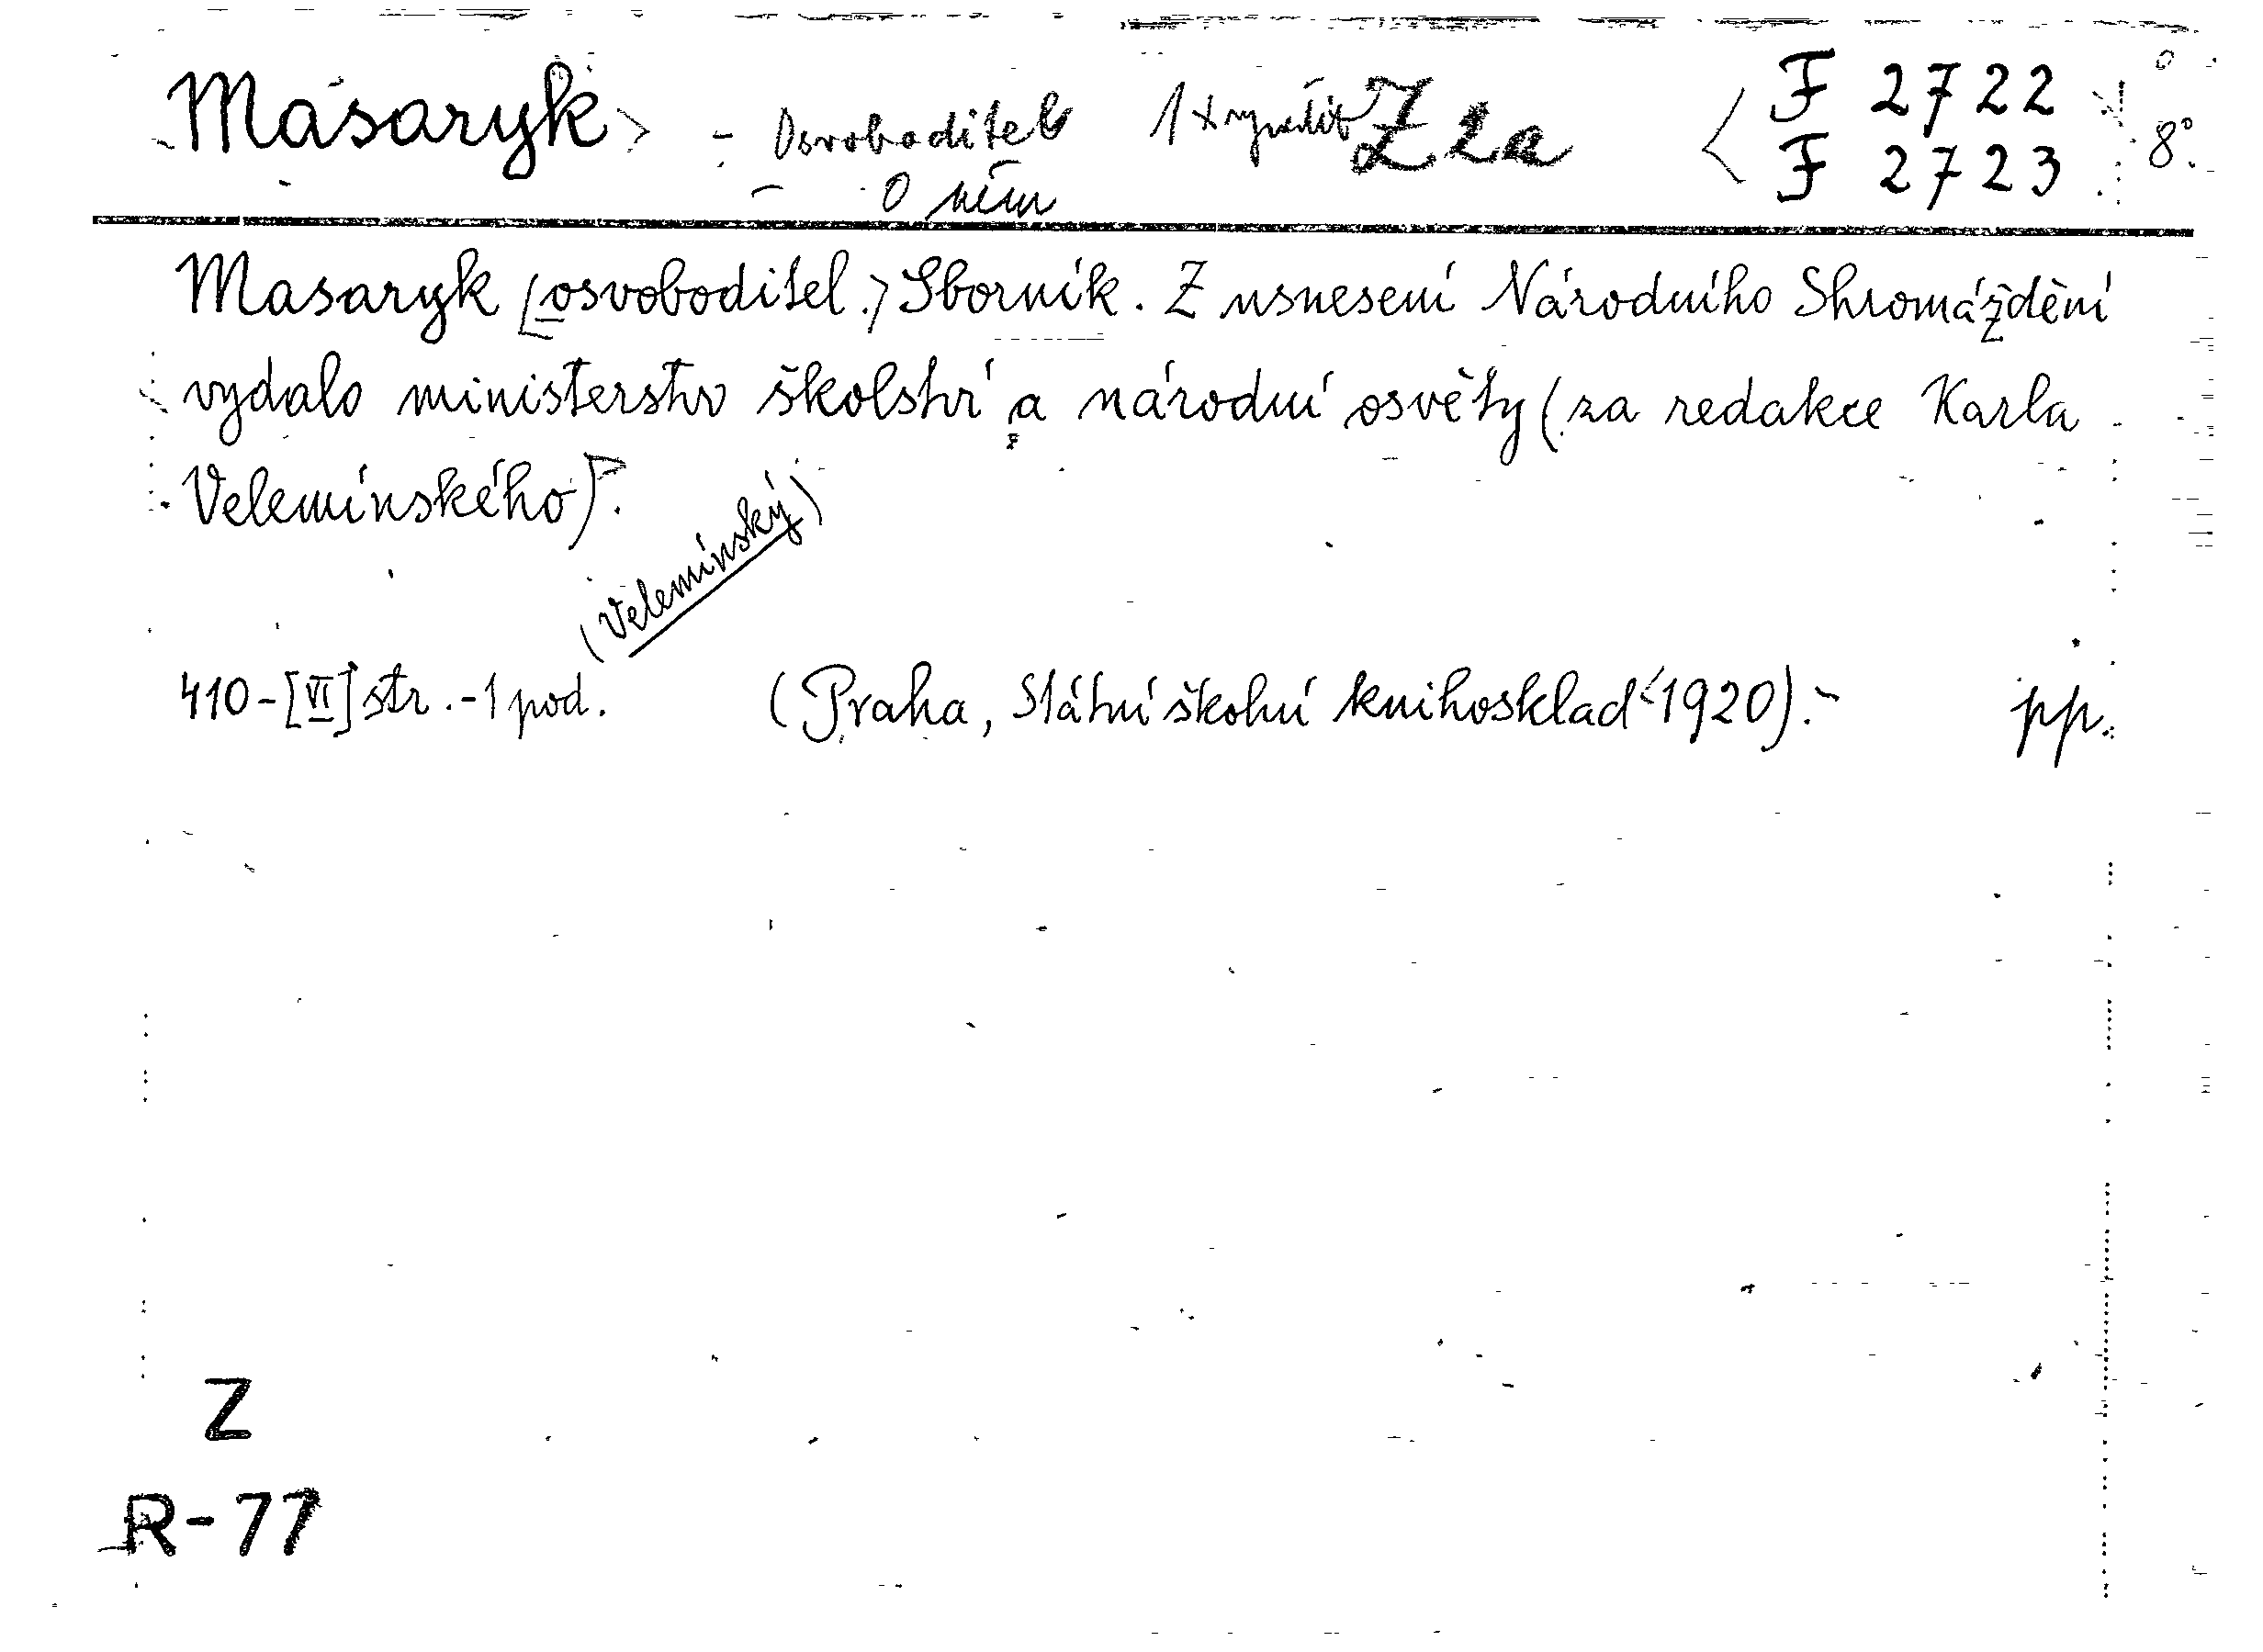 Masaryk - Osvoboditel 1x vyřadit Z 2a < F 2722
F 2723 8°.
O něm
Masaryk [osvoboditel.] Sborník. Z usnesení Národního Shromáždění
vydalo ministerstvo školství a národní osvěty (za redakce Karla
Velemínského).
(Velemínský)
410-[VI] str.-1 pod. (Praha, Státní školní knihosklad 1920).- pp.
Z
R-77